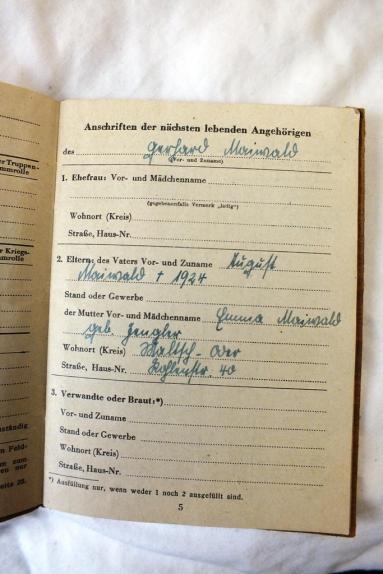 r Truppen-
mmrolle
r Kriegs-
mrolle
ständig
n Feld-
m zum
en nur
eite 23.
Anschriften der nächsten lebenden Angehörigen
des Gerhard Maiwald
(Vor- und Zuname)
1. Ehefrau: Vor- und Mädchenname
(gegebenenfalls Vermerk „ledig“)
Wohnort (Kreis)
Straße, Haus-Nr.
2. Eltern: des Vaters Vor- und Zuname August
Maiwald † 1924
Stand oder Gewerbe
der Mutter Vor- und Mädchenname Emma Maiwald
geb. Zengler
Wohnort (Kreis) Maltsch-Oder
Straße, Haus-Nr. Kohlenstr. 40
3. Verwandte oder Braut:*)
Vor- und Zuname
Stand oder Gewerbe
Wohnort (Kreis)
Straße, Haus-Nr.
*) Ausfüllung nur, wenn weder 1 noch 2 ausgefüllt sind.
5